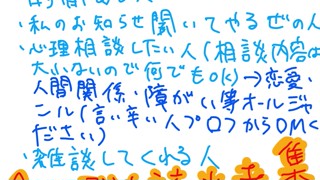 ・私のお知らせ聞いてやるぜの人
・心理相談したい人(相談内容は
大いないので何でもok)→恋愛、
人間関係、障がい等オールジャ
ンル(言い辛い人プロフからDMく
ださい)
・雑談してくれる人
集